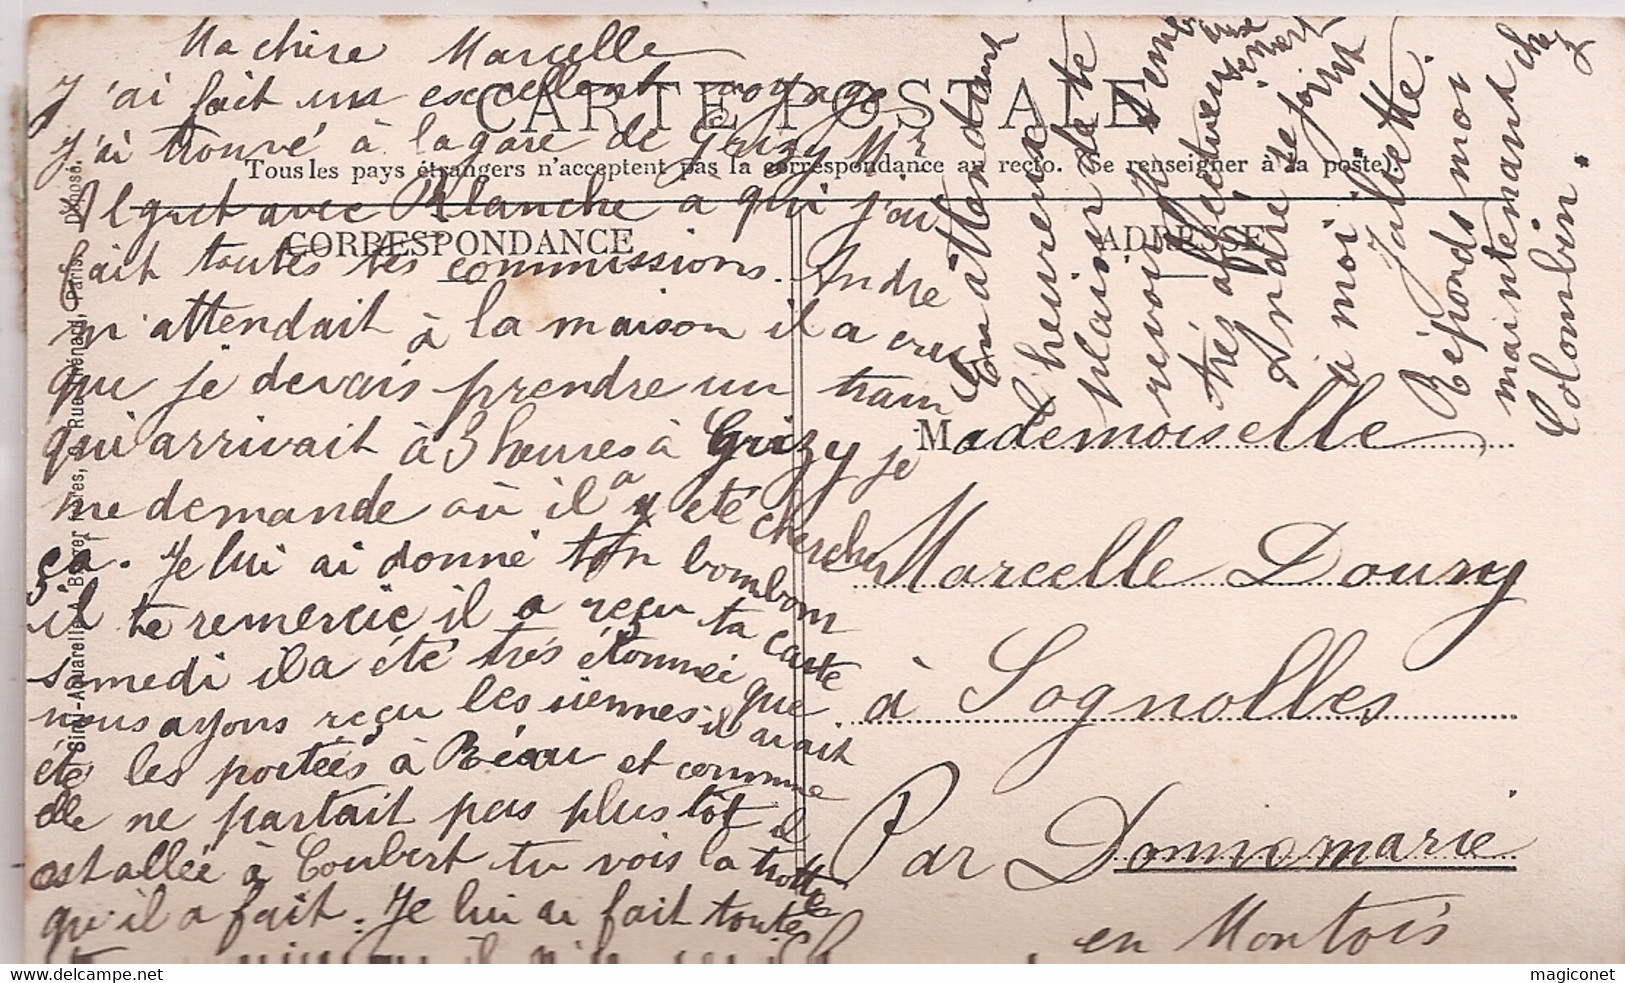 Ma chère Marcelle
J'ai fait un excellent voyage
j'ai trouvé à la gare de Grizy Mr
avec Blanche à qui j'ai
fait toutes tes commissions. André
m'attendait à la maison il a cru
que je devais prendre un train
qui arrivait à 3 heures à Grizy je
me demande où il a été cherché
ça. Je lui ai donné ton bombom
il te remercie il a reçu ta carte
samedi il a été très étonnée que
nous ayons reçu les siennes il avait
été les portées à Réau et comme
elle ne partait pas plus tôt il
est allée à Coubert tu vois la trotte
qu'il a fait. Je lui ai fait toutes
CARTE POSTALE
Tous les pays étrangers n'acceptent pas la correspondance au recto. (Se renseigner à la poste).
CORRESPONDANCE
ADRESSE
Mademoiselle
Marcelle Douny
à Sognolles
Par Donnemarie
en Montois
En attendant
l'heureux
plaisir de te
revoir je t'emb
très affectueusement
André se joint
à moi
Juliette.
Réponds moi
maintenant chez
Colombin.
Simi-Aquarelle, Berger Frères, Rue Thénard, Paris. Déposé.
magiconet